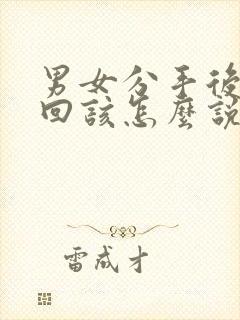 男女分手後
回該怎麼說
雷成才